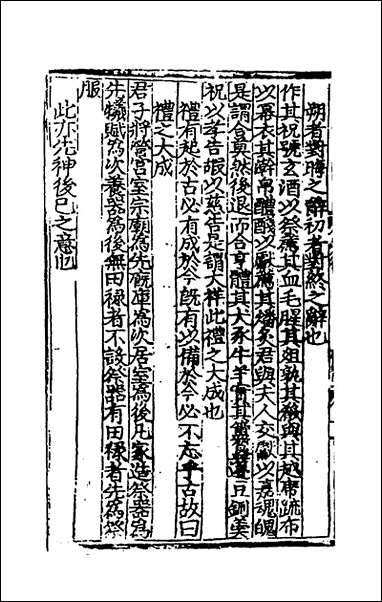 朔者對晦之辭初者對終之辭也
作其祝號玄酒以祭薦其血毛腥其俎孰其殽與其越席疏布
以冪衣其澣帛醴醆以獻薦其燔炙君與夫人交獻以嘉魂魄
是謂合莫然後退而合亨體其犬豕牛羊實其簠簋籩豆鉶羹
祝以孝告嘏以慈告是謂大祥此禮之大成也
禮有起於古必有成於今旣有以備於今必不忘乎古故曰
禮之大成
君子將營宮室宗廟為先廐庫為次居室為後凡家造祭器為
先犧賦為次養器為後無田祿者不設祭器有田祿者先為祭
服
此亦先神後己之意也